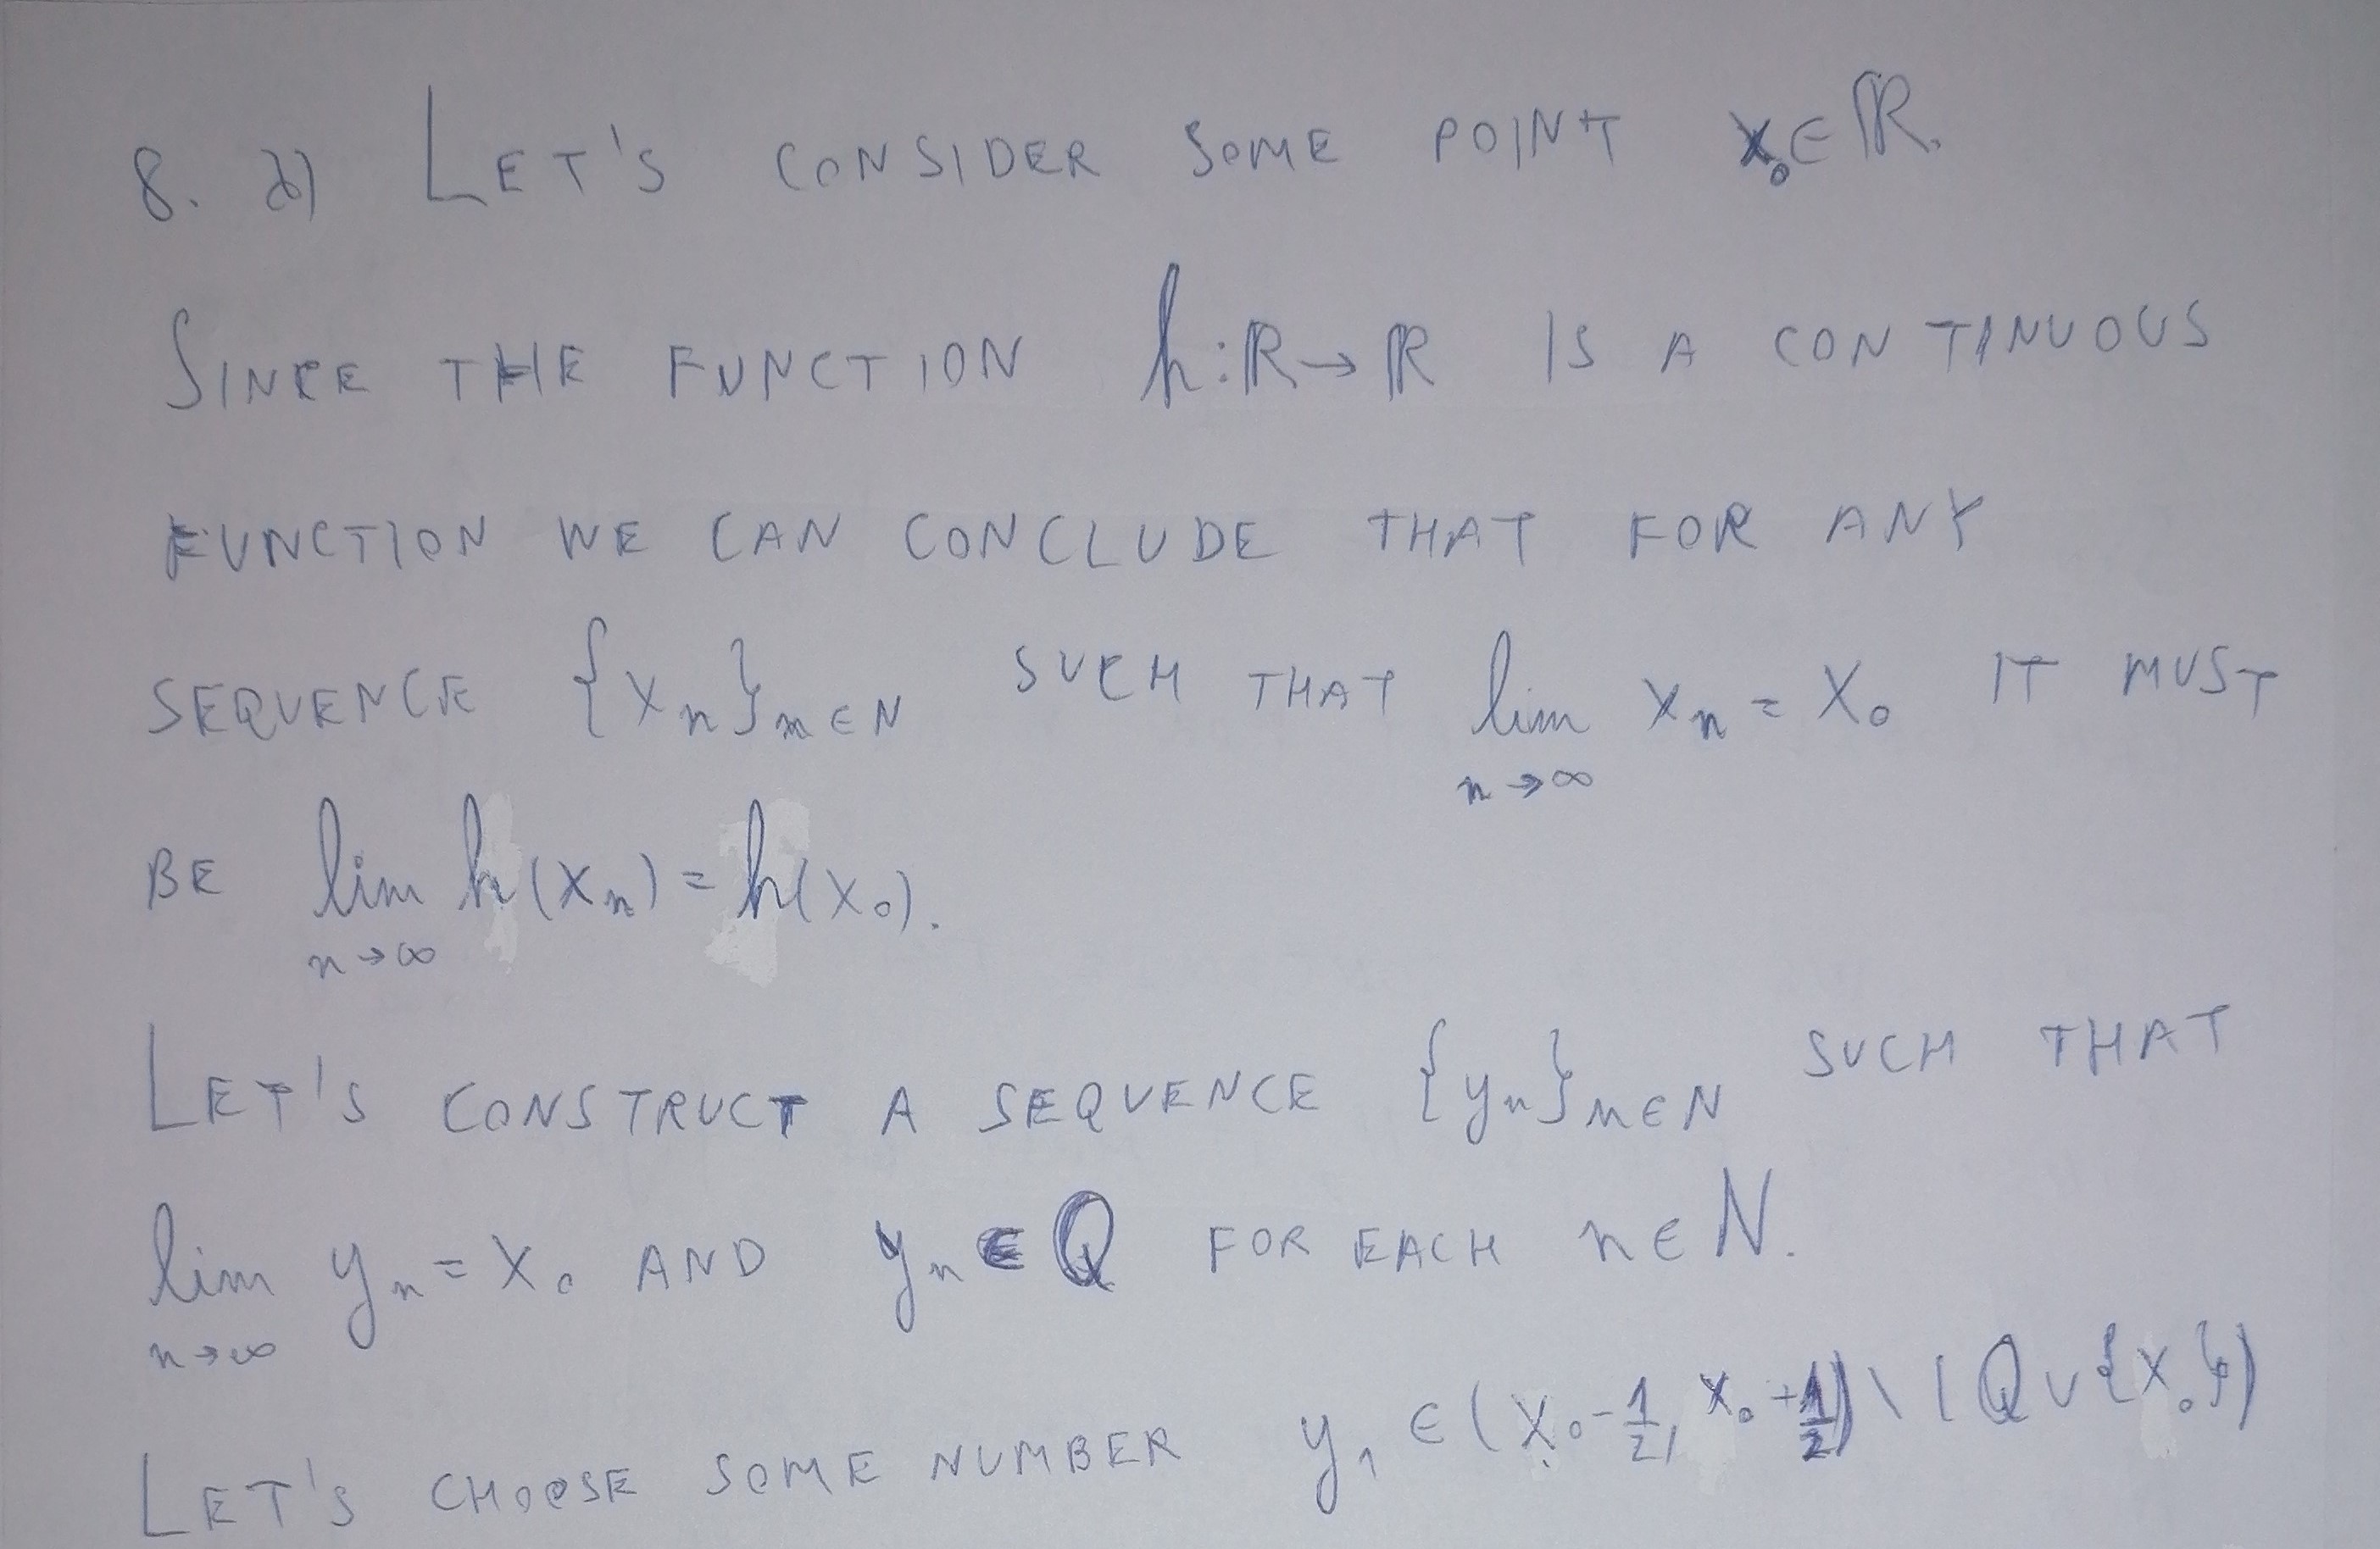 8. a) LET'S CONSIDER SOME POINT x₀∈ℝ.
SINCE THE FUNCTION h:ℝ→ℝ IS A CONTINUOUS
FUNCTION WE CAN CONCLUDE THAT FOR ANY
SEQUENCE {xₙ}ₙ∈N SUCH THAT lim xₙ = x₀ IT MUST
n→∞
BE lim h(xₙ) = h(x₀).
n→∞
LET'S CONSTRUCT A SEQUENCE {yₙ}ₙ∈N SUCH THAT
lim yₙ = x₀ AND yₙ ∈ Q FOR EACH n∈N.
n→∞
LET'S CHOOSE SOME NUMBER y₁ ∈ (x₀ - 1/2, x₀ + 1/2) \ (Q ∪ {x₀})